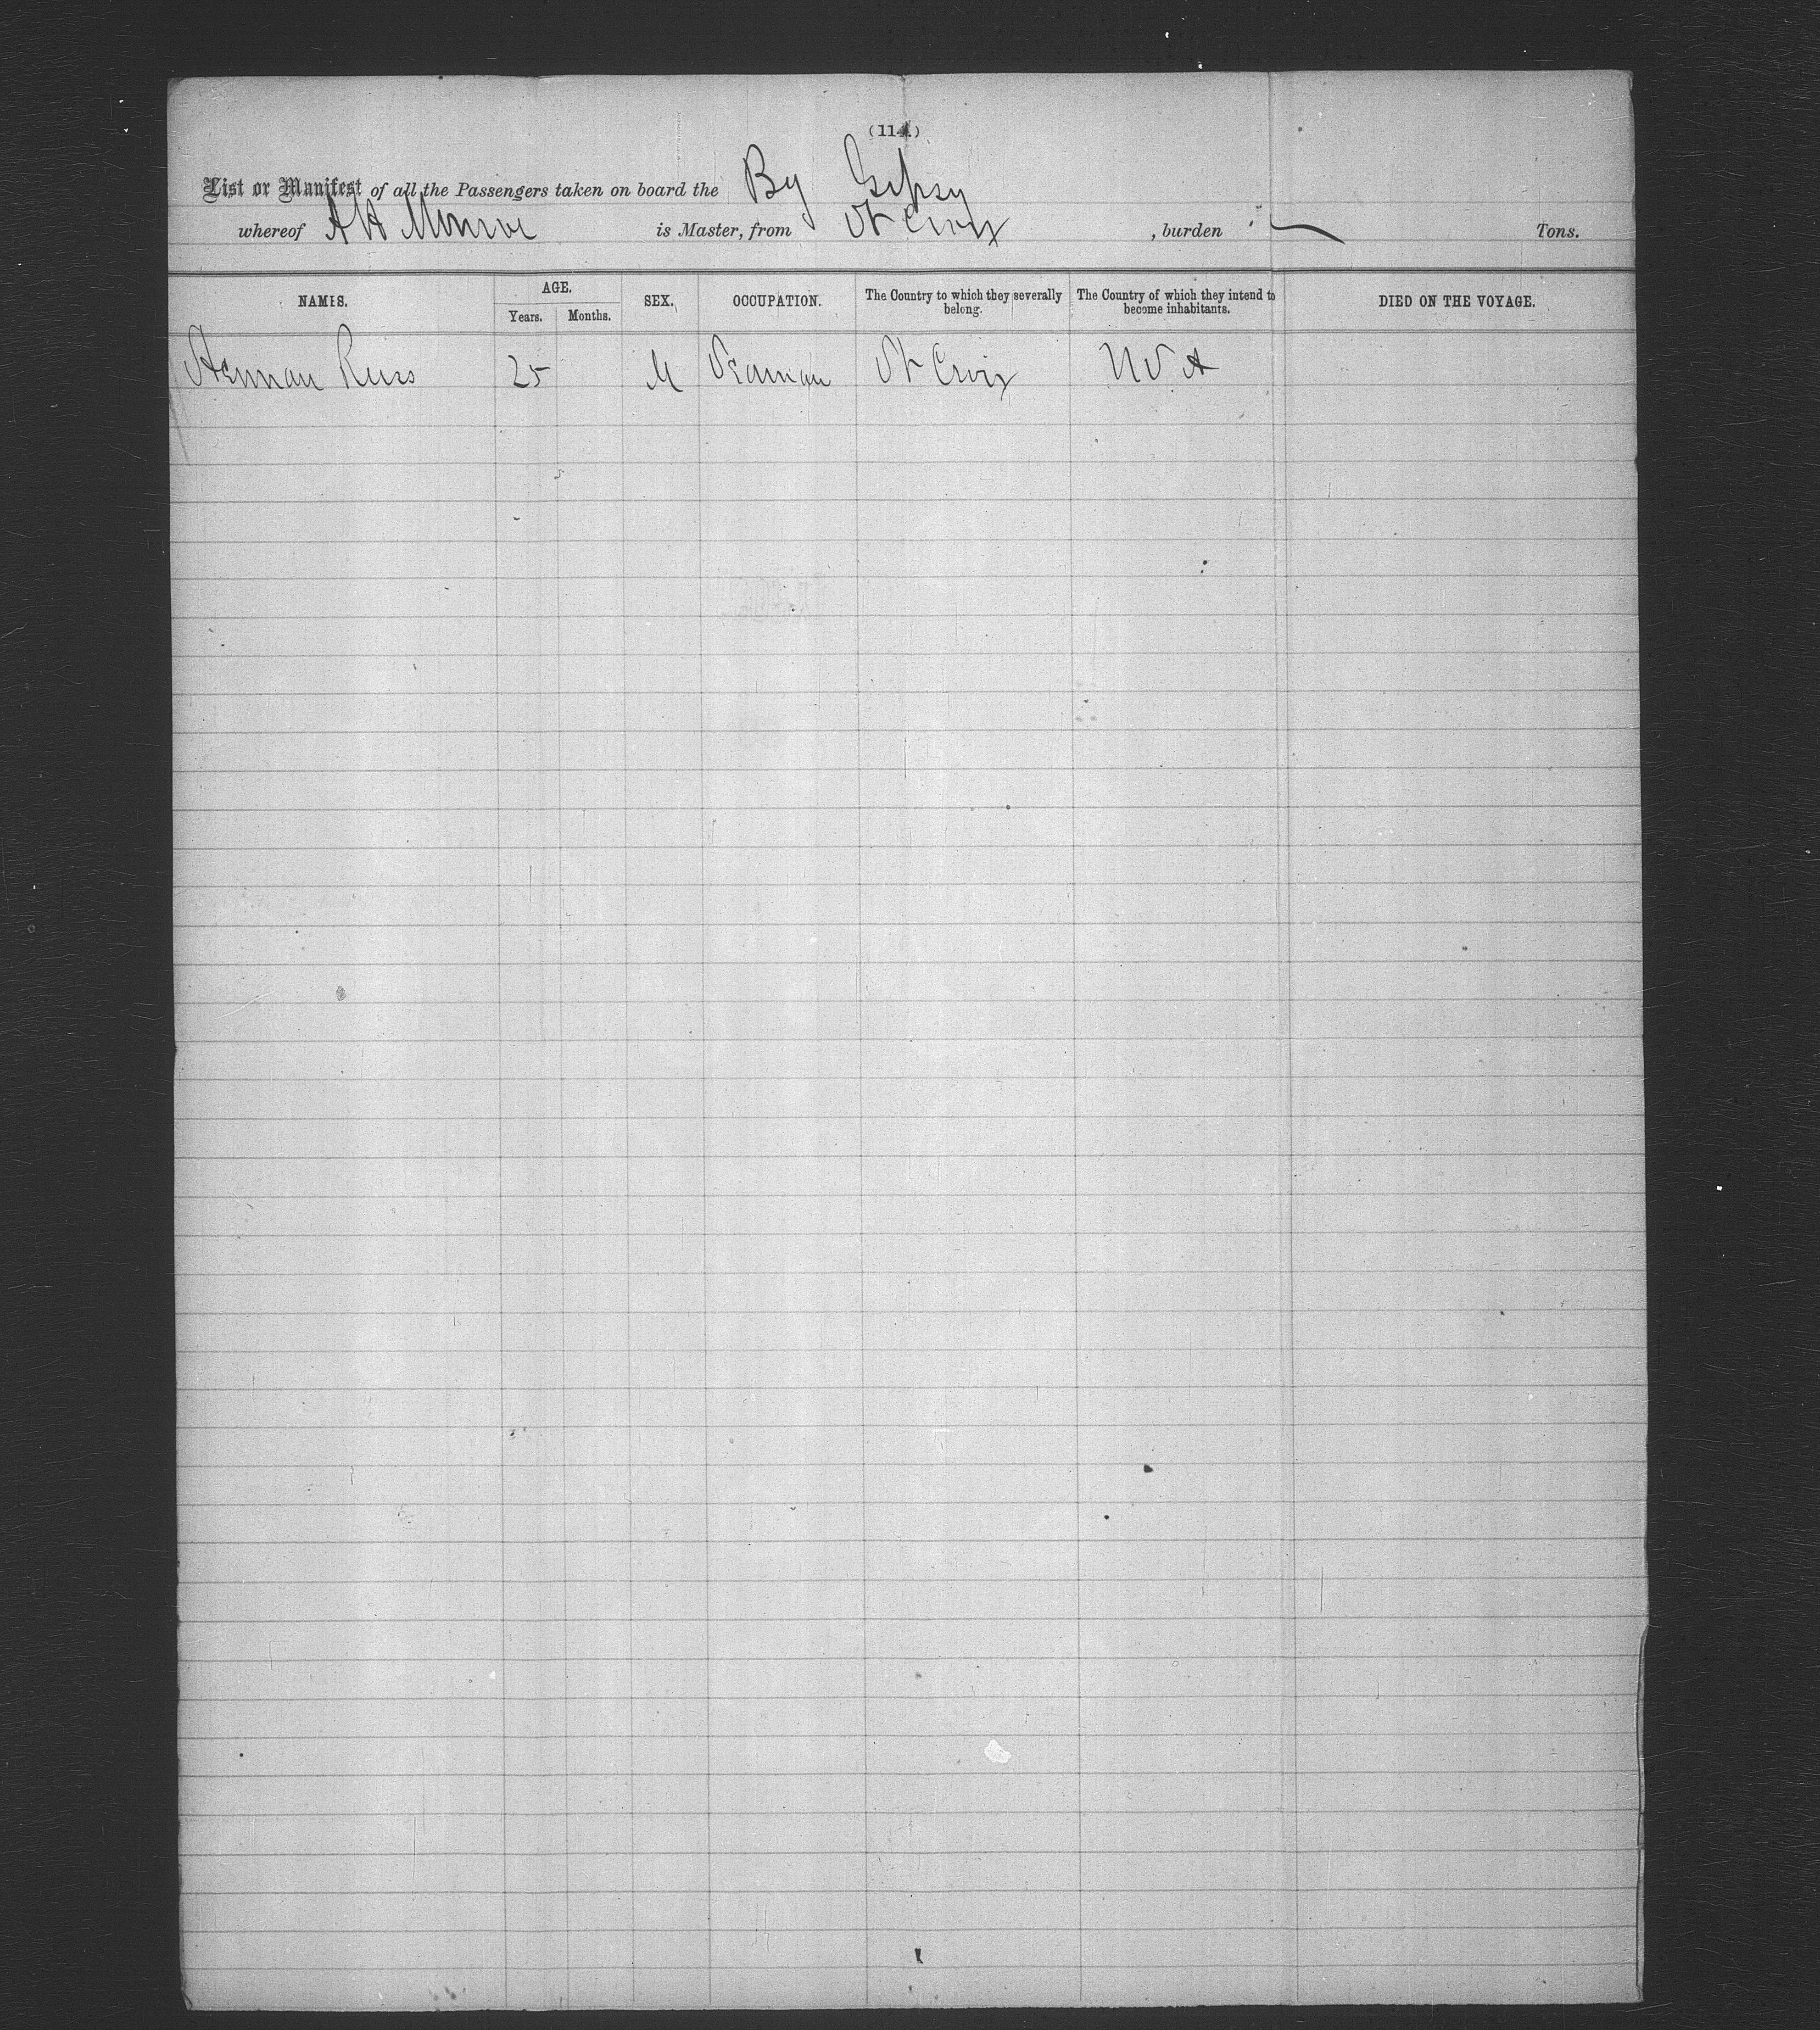 (114.)
List or Manifest of all the Passengers taken on board the Bg Gipsy
whereof A H Monroe is Master, from St Croix , burden Tons.
NAMES. AGE. SEX. OCCUPATION. The Country to which they severally belong. The Country of which they intend to become inhabitants. DIED ON THE VOYAGE.
Years. Months.
Herman Reiss 25 M Seaman St Croix U S A